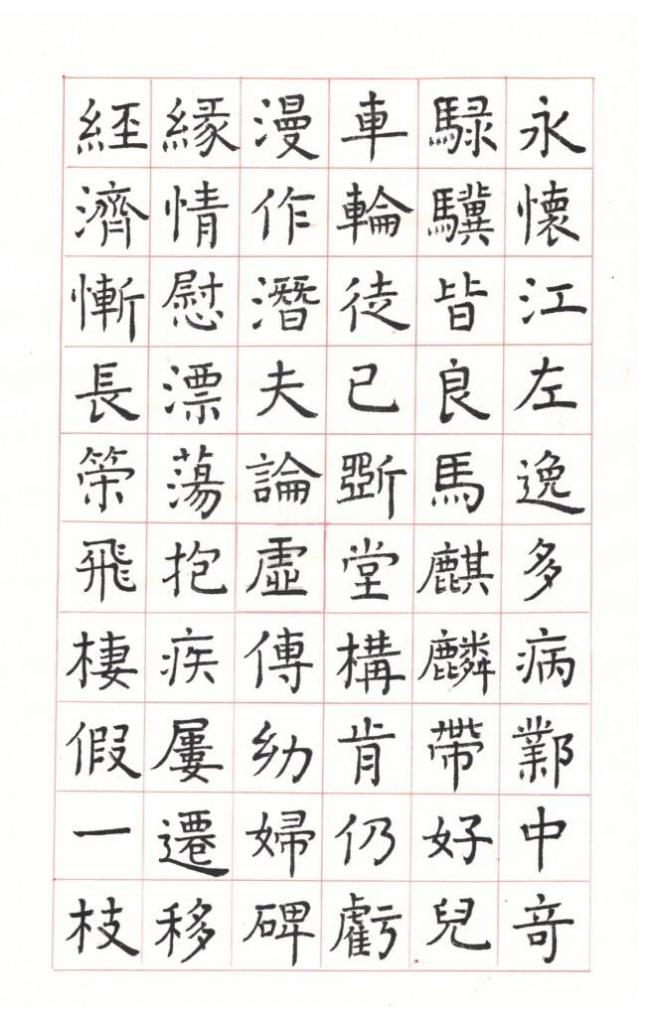 永懷江左逸多病鄴中竒
騄驥皆良馬麒麟帶好兒
車輪徒已斲堂構肯仍虧
漫作潛夫論虛傳幼婦碑
緣情慰漂蕩抱疾屢遷移
經濟慚長策飛棲假一枝